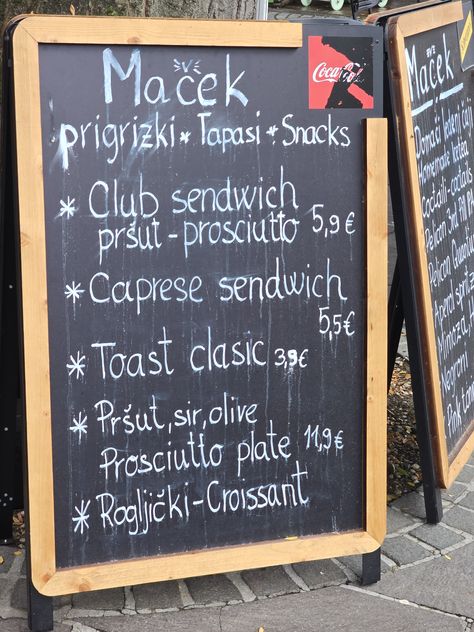 Maček
Coca-Cola
prigrizki * Tapasi * Snacks
* Club sendwich
pršut - prosciutto 5,9€
* Caprese sendwich
5,5€
* Toast clasic 3,9€
* Pršut, sir, olive
Prosciutto plate 11,9€
* Rogljički - Croissant
Maček
Domači ledeni
Homemade
Cocktaili - cocktails
Pelican
Pelican
Aperol
Mimoza
Negroni
Pink